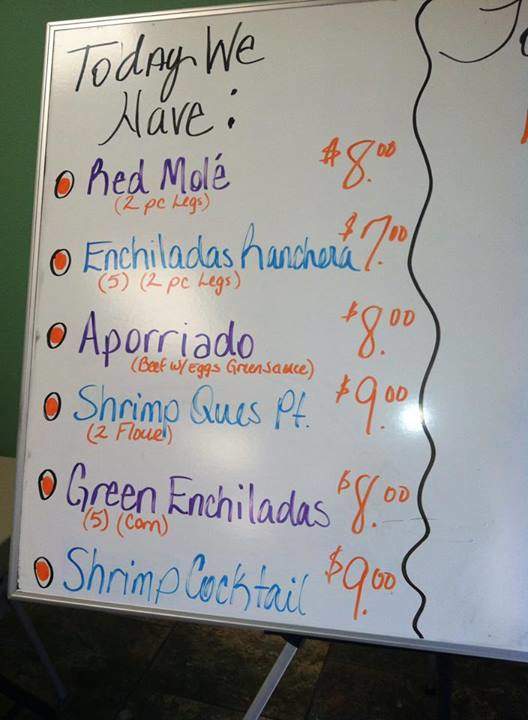 Today We
Have:
Red Molé $8.00
(2 pc Legs)
Enchiladas Ranchera $7.00
(5) (2 pc Legs)
Aporriado $8.00
(Beef w/ Eggs Green Sauce)
Shrimp Ques Pt. $9.00
(2 Flour)
Green Enchiladas $8.00
(5) (Corn)
Shrimp Cocktail $9.00